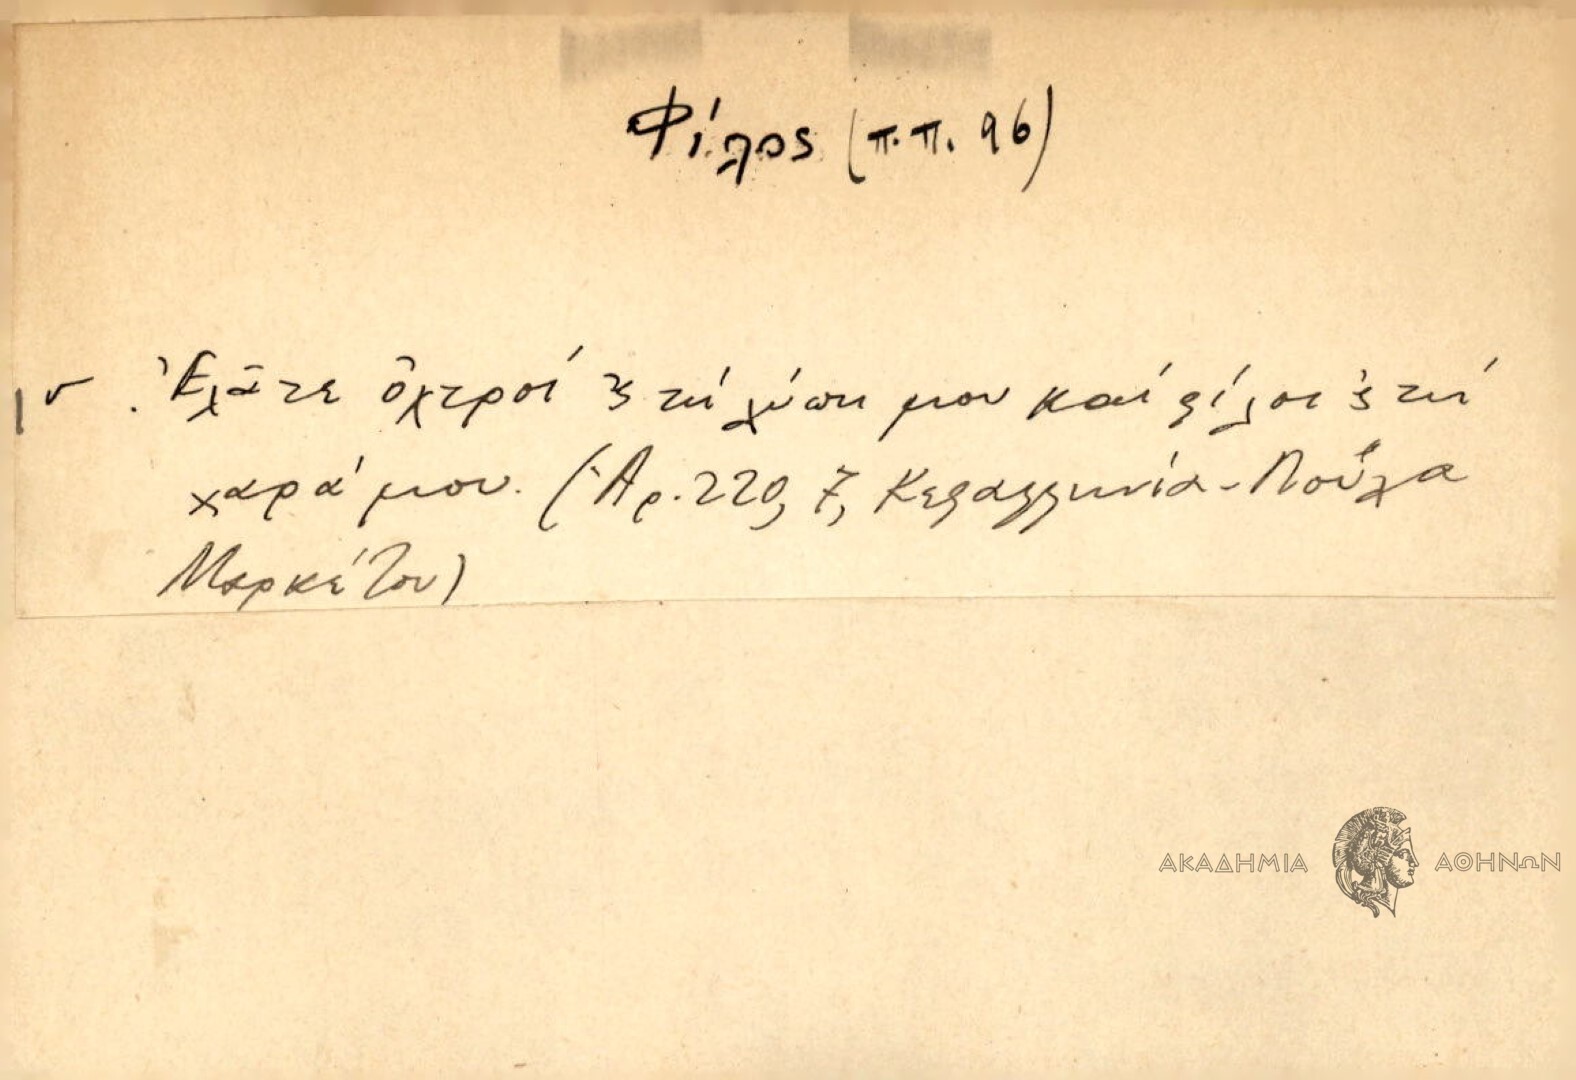 Φίλος (π.π. 96)
Ἐλᾶτε ὀχτροί 'ς τή λύπη μου καί φίλοι 'ς τή
χαρά μου. (Ἀρ. 220, 7, Κεφαλληνία - Λούλα
Μαρκέτου)
ΑΚΑΔΗΜΙΑ ΑΘΗΝΩΝ